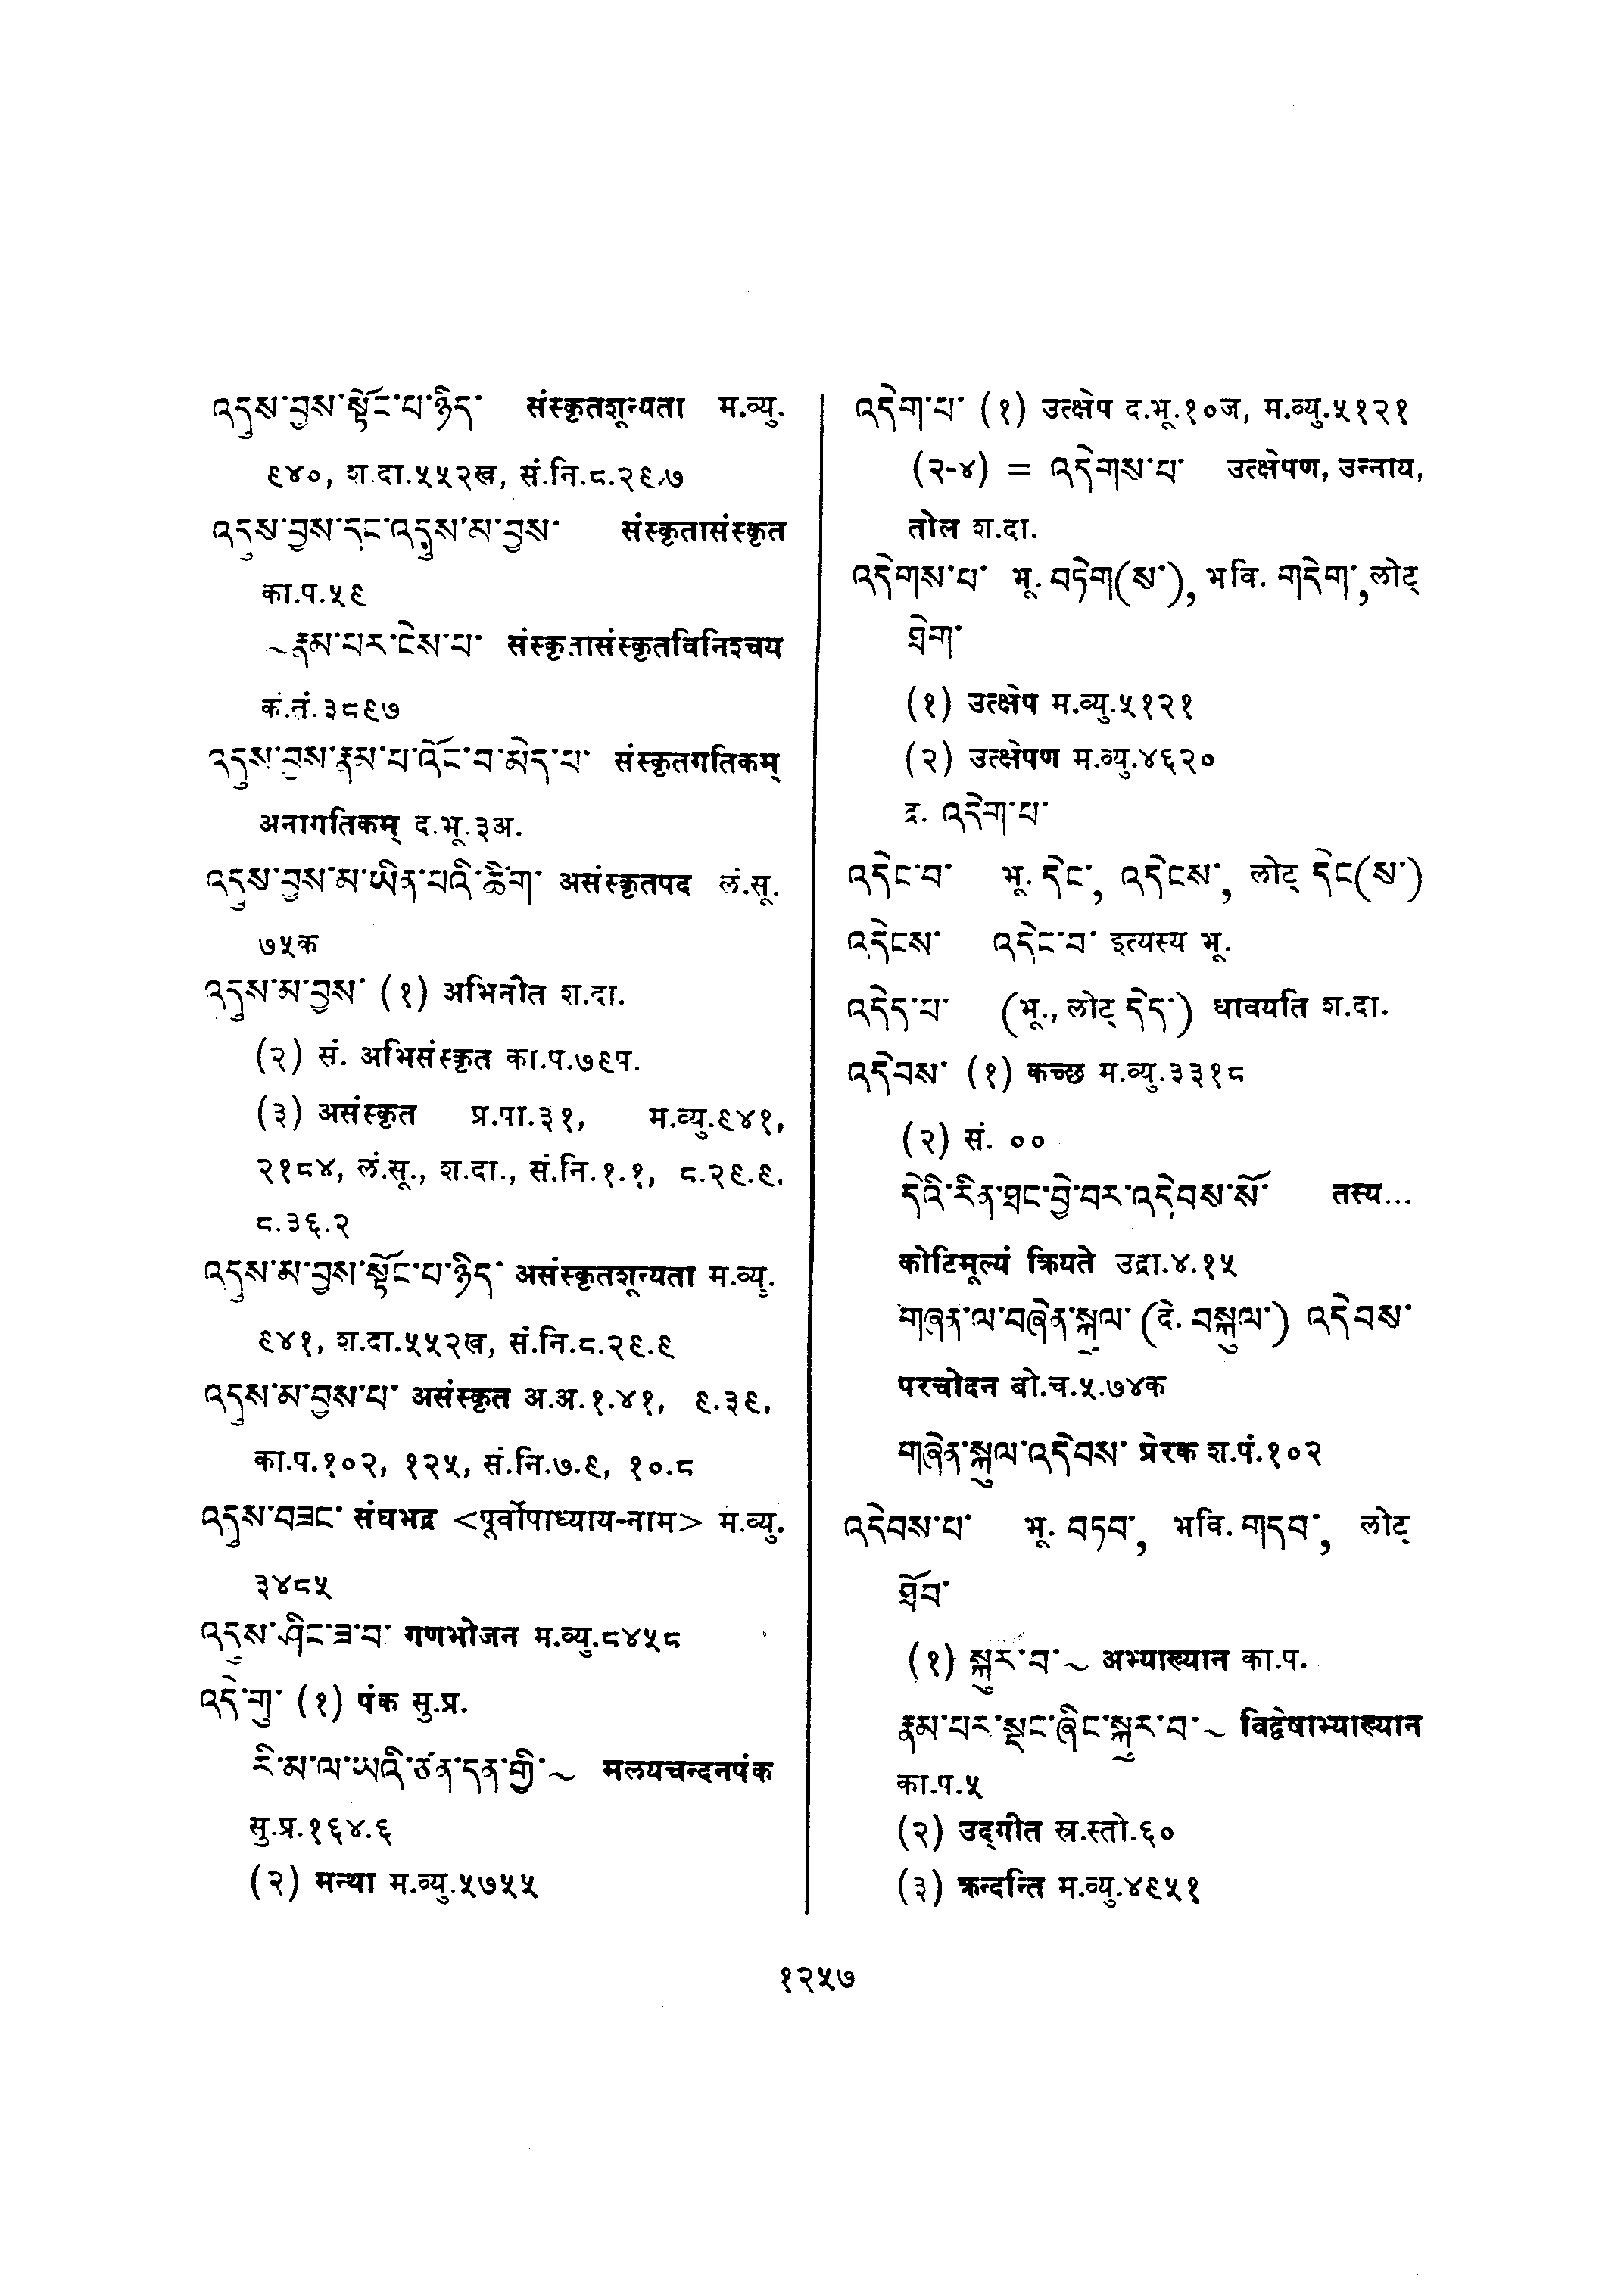 འདུས་བྱས་སྟོང་པ་ཉིད་ संस्कृतशून्यता म.व्यु.
९४०, श.दा.५५२ख, सं.नि.८.२९.७
འདུས་བྱས་དང་འདུས་མ་བྱས་ संस्कृतासंस्कृत
का.प.५९
~རྣམ་པར་ངེས་པ་ संस्कृतासंस्कृतविनिश्चय
क.तं.३८९७
འདུས་བྱས་རྣམ་པ་འོང་བ་མེད་པ་ संस्कृतगतिकम्
अनागतिकम् द.भू.३अ.
འདུས་བྱས་མ་ཡིན་པའི་ཚིག་ असंस्कृतपद लं.सू.
७५क
འདུས་མ་བྱས་ (१) अभिनीत श.दा.
(२) सं. अभिसंस्कृत का.प.७९प.
(३) असंस्कृत प्र.पा.३१, म.व्यु.९४१,
२१८४, लं.सू., श.दा., सं.नि.१.१, ८.२९.९.
८.३६.२
འདུས་མ་བྱས་སྟོང་པ་ཉིད་ असंस्कृतशून्यता म.व्यु.
९४१, श.दा.५५२ख, सं.नि.८.२९.९
འདུས་མ་བྱས་པ་ असंस्कृत अ.अ.१.४१, ९.३९,
का.प.१०२, १२५, सं.नि.७.९, १०.८
འདུས་བཟང་ संघभद्र <पूर्वोपाध्याय-नाम> म.व्यु.
३४८५
འདུས་ཤིང་ཟ་བ་ गणभोजन म.व्यु.८४५८
འདེ་གུ་ (१) पंक सु.प्र.
རི་མ་ལ་ཡའི་ཙན་དན་གྱི་~ मलयचन्दनपंक
सु.प्र.१६४.६
(२) मन्था म.व्यु.५७५५
འདེག་པ་ (१) उत्क्षेप द.भू.१०ज, म.व्यु.५१२१
(२-४) = འདེགས་པ་ उत्क्षेपण, उन्नाय,
तोल श.दा.
འདེགས་པ་ भू. བཏེག(ས་), भवि. གདེག་, लोट्
ཐེག་
(१) उत्क्षेप म.व्यु.५१२१
(२) उत्क्षेपण म.व्यु.४६२०
द्र. འདེག་པ་
འདེང་བ་ भू. དེང་, འདེངས་, लोट् དེང(ས་)
འདེངས་ འདེང་བ་ इत्यस्य भू.
འདེད་པ་ (भू., लोट् དེད་) धावयति श.दा.
འདེབས་ (१) कच्छ म.व्यु.३३१८
(२) सं. ००
དེའི་རིན་ཐང་བྱེ་བར་འདེབས་སོ་ तस्य...
कोटिमूल्यं क्रियते उद्रा.४.१५
གཞན་ལ་བཞེན་སྐུལ་ (दे. བསྐུལ་) འདེབས་
परचोदन बो.च.५.७४क
གཞེན་སྐུལ་འདེབས་ प्रेरक श.पं.१०२
འདེབས་པ་ भू. བཏབ་, भवि. གདབ་, लोट्
ཐོབ་
(१) སྐུར་བ་~ अभ्याख्यान का.प.
རྣམ་པར་སྡང་ཞིང་སྐུར་བ་~ विद्वेषाभ्याख्यान
का.प.५
(२) उद्गीत स्र.स्तो.६०
(३) क्रन्दन्ति म.व्यु.४९५१
१२५७